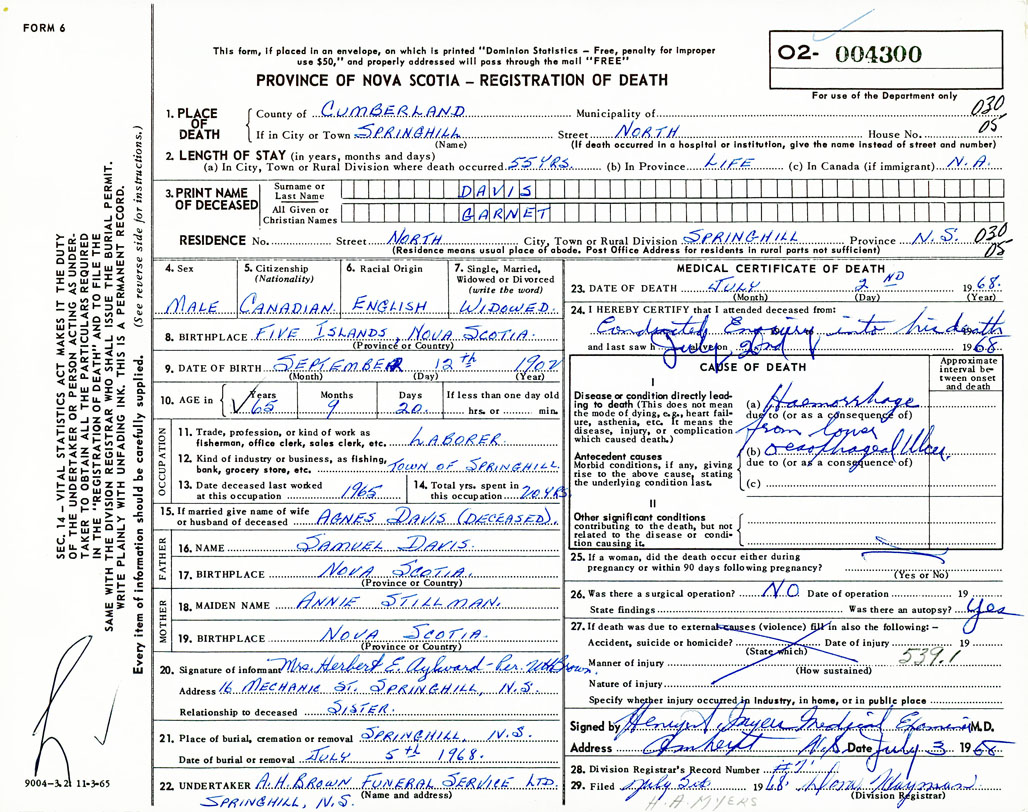 FORM 6
This form, if placed in an envelope, on which is printed "Dominion Statistics – Free, penalty for improper
use $50," and properly addressed will pass through the mail "FREE"
PROVINCE OF NOVA SCOTIA – REGISTRATION OF DEATH
O2- 004300
For use of the Department only
SEC. 14 – VITAL STATISTICS ACT MAKES IT THE DUTY
OF THE UNDERTAKER OR PERSON ACTING AS UNDER-
TAKER TO OBTAIN ALL THE PARTICULARS REQUIRED
IN THE "REGISTRATION OF DEATH" AND TO FILE THE
SAME WITH THE DIVISION REGISTRAR WHO SHALL ISSUE THE BURIAL PERMIT.
WRITE PLAINLY WITH UNFADING INK. THIS IS A PERMANENT RECORD.
Every item of information should be carefully supplied. (See reverse side for instructions.)
1. PLACE OF DEATH
County of CUMBERLAND Municipality of 030
If in City or Town SPRINGHILL Street NORTH House No. 05
(Name) (If death occurred in a hospital or institution, give the name instead of street and number)
2. LENGTH OF STAY (in years, months and days)
(a) In City, Town or Rural Division where death occurred 55 YRS. (b) In Province LIFE (c) In Canada (if immigrant) N.A.
3. PRINT NAME OF DECEASED
Surname or Last Name DAVIS
All Given or Christian Names GARNET
RESIDENCE No. Street NORTH City, Town or Rural Division SPRINGHILL Province N.S. 030
(Residence means usual place of abode. Post Office Address for residents in rural parts not sufficient) 05
4. Sex
MALE
5. Citizenship (Nationality)
CANADIAN
6. Racial Origin
ENGLISH
7. Single, Married, Widowed or Divorced (write the word)
WIDOWED
8. BIRTHPLACE FIVE ISLANDS, NOVA SCOTIA.
(Province or Country)
9. DATE OF BIRTH SEPTEMBER 12th 1902
(Month) (Day) (Year)
10. AGE in
Years Months Days If less than one day old
65 9 20 hrs. or min.
OCCUPATION
11. Trade, profession, or kind of work as
fisherman, office clerk, sales clerk, etc. LABORER.
12. Kind of industry or business, as fishing,
bank, grocery store, etc. TOWN OF SPRINGHILL
13. Date deceased last worked
at this occupation 1965
14. Total yrs. spent in
this occupation 20 YRS
15. If married give name of wife
or husband of deceased AGNES DAVIS (DECEASED).
FATHER
16. NAME SAMUEL DAVIS.
17. BIRTHPLACE NOVA SCOTIA.
(Province or Country)
MOTHER
18. MAIDEN NAME ANNIE STILLMAN.
19. BIRTHPLACE NOVA SCOTIA.
(Province or Country)
20. Signature of informant Mrs. Herbert E. Aylward - Per. Brown.
Address 16 MECHANIC ST. SPRINGHILL, N.S.
Relationship to deceased SISTER.
21. Place of burial, cremation or removal SPRINGHILL, N.S.
Date of burial or removal JULY 5th 1968.
22. UNDERTAKER A.H. BROWN FUNERAL SERVICE LTD.
(Name and address)
SPRINGHILL, N.S.
9004-3.21 11-3-65
MEDICAL CERTIFICATE OF DEATH
23. DATE OF DEATH JULY 2ND 1968.
(Month) (Day) (Year)
24. I HEREBY CERTIFY that I attended deceased from:
Conducted Enquiry into his death
and last saw h alive on July 2nd 1968
CAUSE OF DEATH
Approximate interval between onset and death
I
Disease or condition directly lead-
ing to death (This does not mean
the mode of dying, e.g., heart fail-
ure, asthenia, etc. It means the
disease, injury, or complication
which caused death.)
(a) Haemorrhage
due to (or as a consequence of)
from lower
Antecedent causes
Morbid conditions, if any, giving
rise to the above cause, stating
the underlying condition last.
(b) oesophageal Ulcer.
due to (or as a consequence of)
(c)
II
Other significant conditions
contributing to the death, but not
related to the disease or condi-
tion causing it.
25. If a woman, did the death occur either during
pregnancy or within 90 days following pregnancy?
(Yes or No)
26. Was there a surgical operation? NO Date of operation 19
State findings Was there an autopsy? Yes
27. If death was due to external causes (violence) fill in also the following: –
Accident, suicide or homicide? Date of injury 19
(State which) 539.1
Manner of injury
(How sustained)
Nature of injury
Specify whether injury occurred in Industry, in home, or in public place
Signed by Medical Examiner M.D.
Address Amherst N.S. Date July 3 1968
28. Division Registrar's Record Number #71
29. Filed July 3rd 1968 Wayman
(Division Registrar)
H.A. MYERS